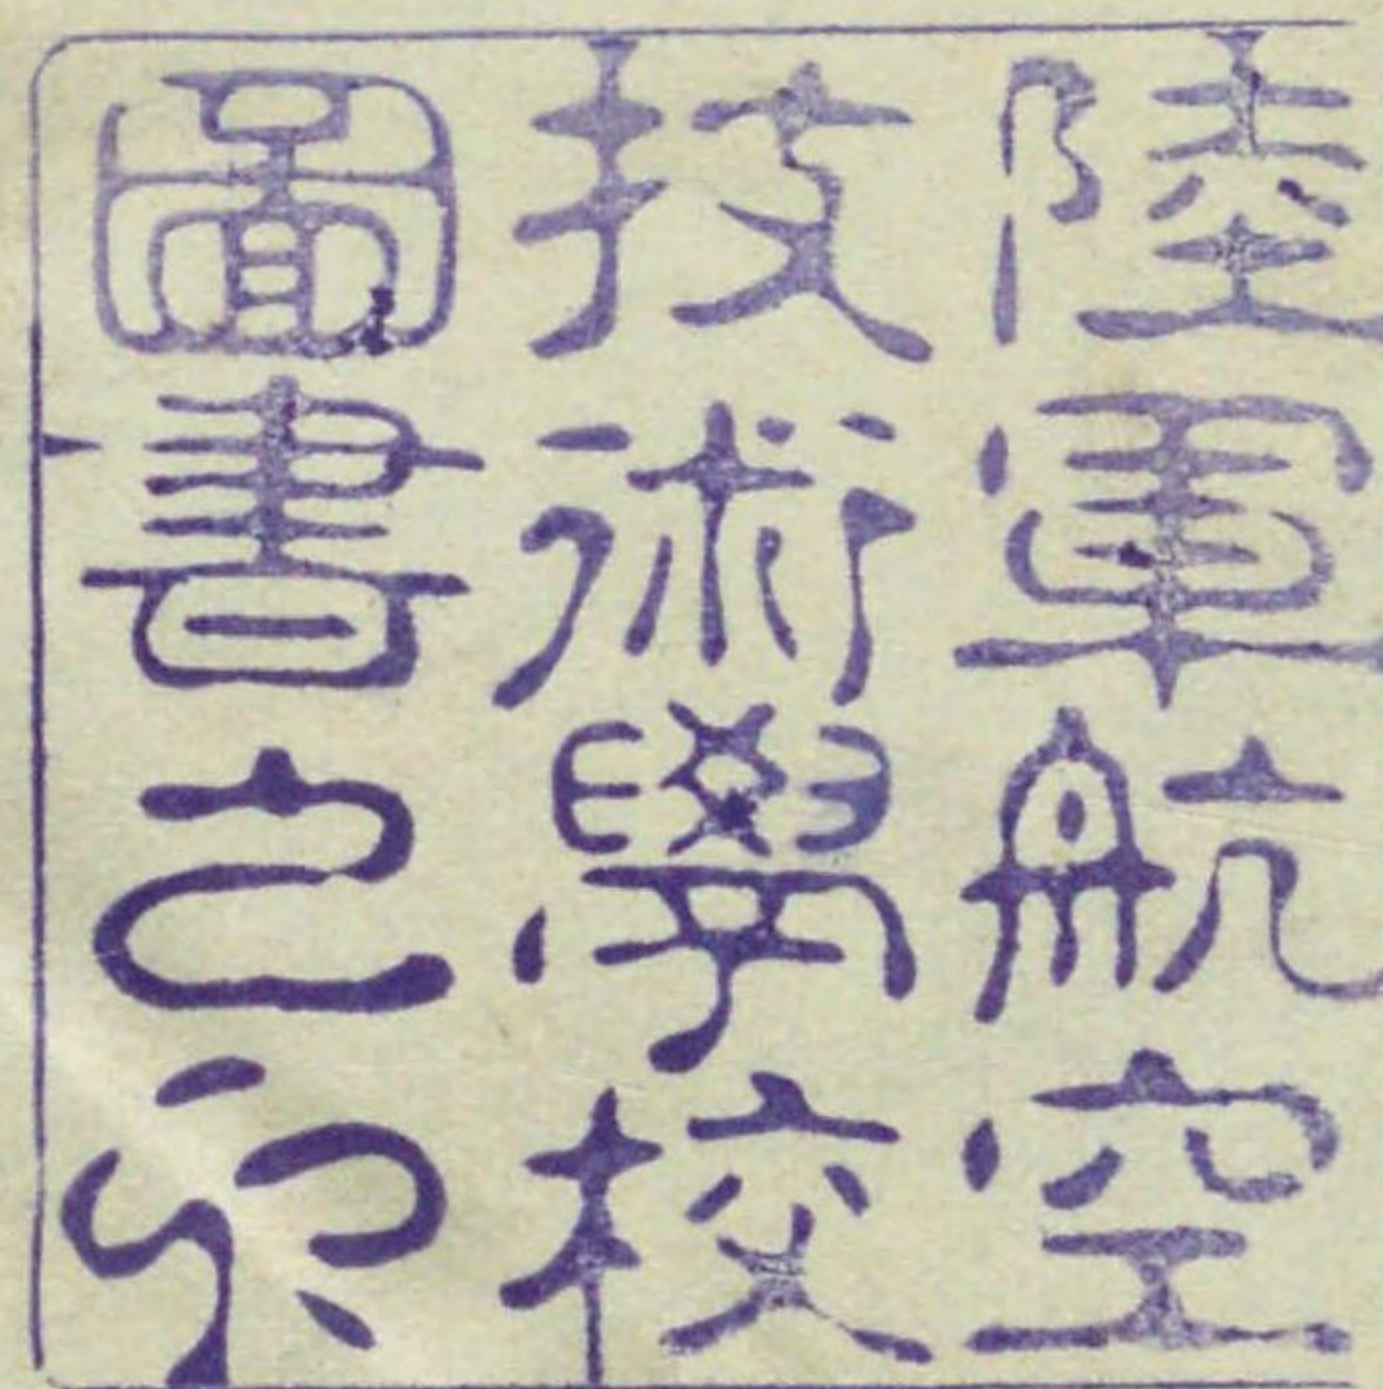 陸軍航空
技術學校
圖書之印